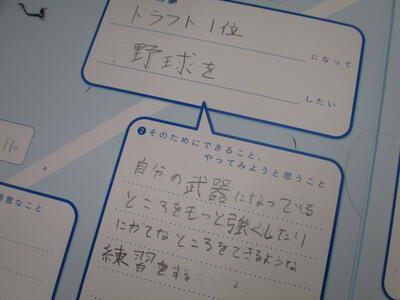 ドラフト1位
になって
野球を
したい
❷そのためにできること、
やってみようと思うこと
自分の武器になっている
ところをもっと強くしたり
にがてなところをできるような
練習をする
意なこと